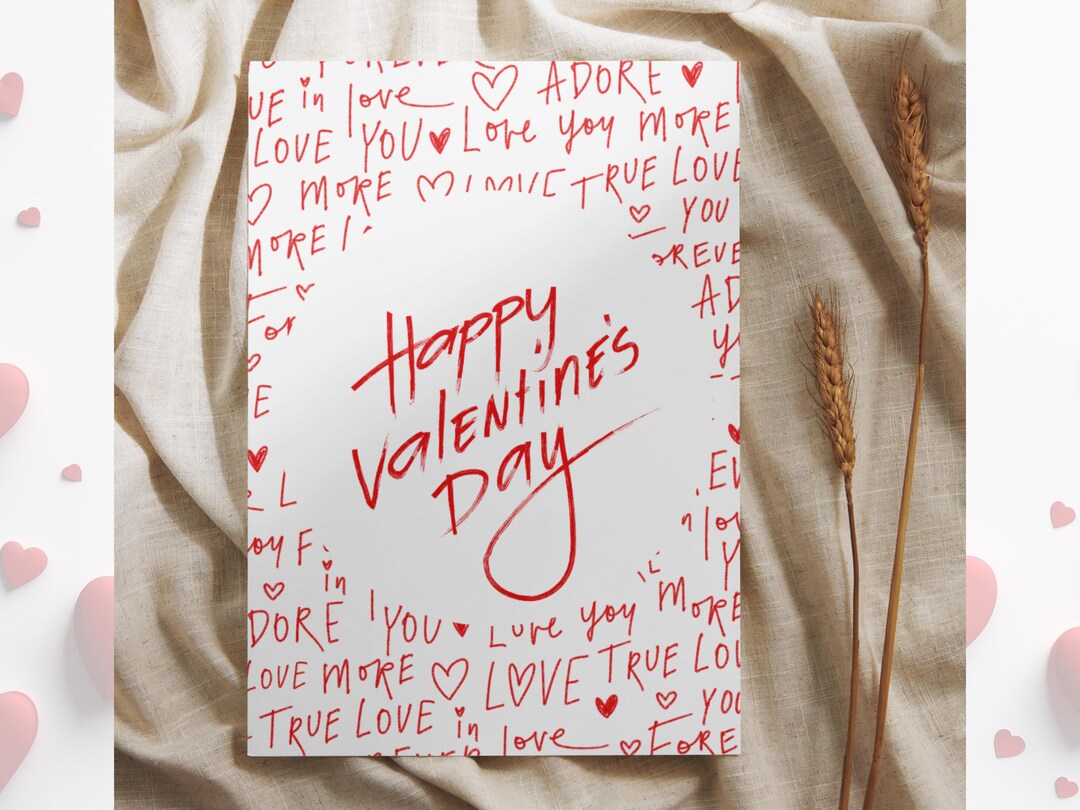 FOREVE
UE in love ADORE
LOVE YOU Love you MORE
MORE TRUE LOVE
MORE YOU
REVE
For AD
E
Happy
Valentine's
Day
L EV
oy F. lov
in
DORE YOU Love you MORE
LOVE MORE LOVE TRUE LOV
TRUE LOVE in YOU
love FORE